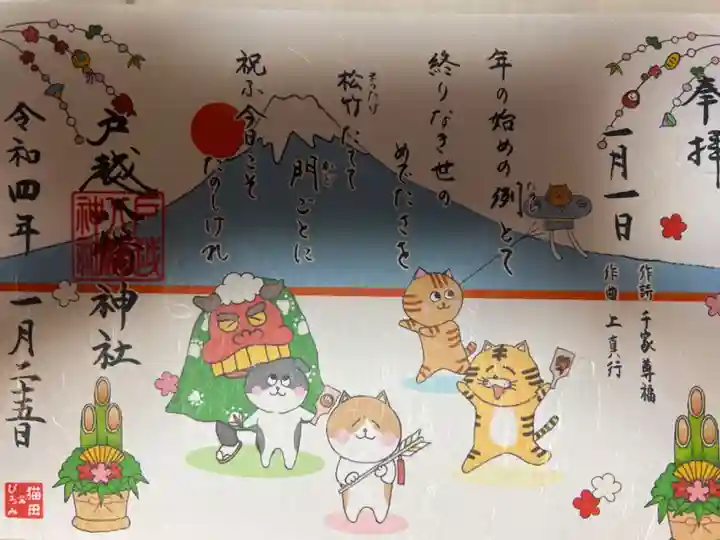 奉拝
一月一日
作詞 千家尊福
作曲 上真行
年の始めの例とて
ためし
終りなき世の
めでたさを
松竹たてて
まつたけ
門ごとに
かど
祝ふ今日こそ
たのしけれ
戸越八幡神社
戸越
八幡
神社
令和四年 一月二十五日
猫田
ひろみ